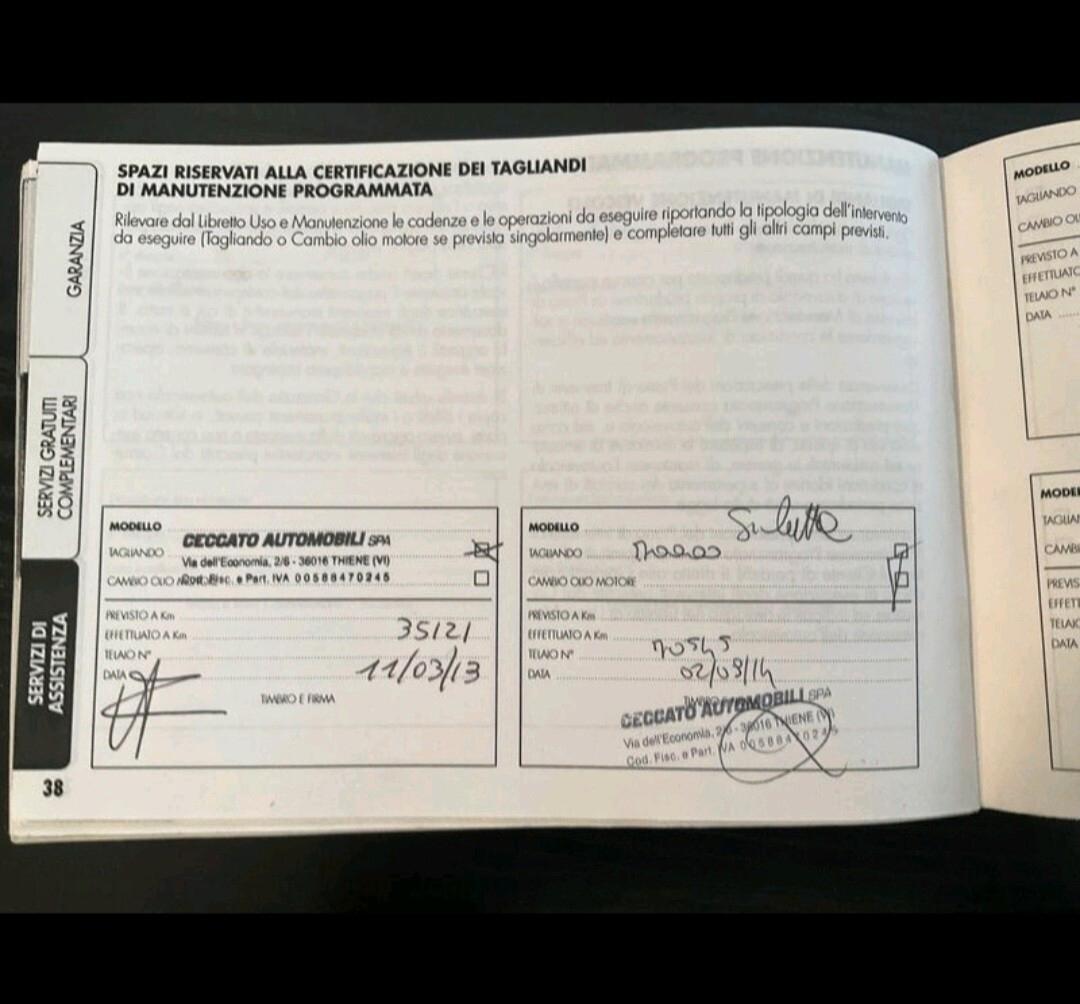 SPAZI RISERVATI ALLA CERTIFICAZIONE DEI TAGLIANDI
DI MANUTENZIONE PROGRAMMATA
Rilevare dal Libretto Uso e Manutenzione le cadenze e le operazioni da eseguire riportando la tipologia dell'intervento
da eseguire (Tagliando o Cambio olio motore se prevista singolarmente) e completare tutti gli altri campi previsti.
GARANZIA
SERVIZI GRATUITI
COMPLEMENTARI
SERVIZI DI
ASSISTENZA
MODELLO
CECCATO AUTOMOBILI SPA
TAGLIANDO
Via dell'Economia, 2/6 - 36016 THIENE (VI)
CAMBIO OLIO
Cod. Fisc. e Part. IVA 00588470245
PREVISTO A Km
EFFETTUATO A Km 35121
TELAIO N°
DATA 11/03/13
TIMBRO E FIRMA
MODELLO Giulietta
TAGLIANDO
CAMBIO OLIO MOTORE
PREVISTO A Km
EFFETTUATO A Km
TELAIO N° 70545
DATA
TIMBRO E FIRMA
CECCATO AUTOMOBILI SPA
Via dell'Economia, 2/6 - 36016 THIENE (VI)
Cod. Fisc. e Part. IVA 00588470245
38
MODELLO
TAGLIANDO
CAMBIO
PREVISTO A
EFFETTUATO
TELAIO N°
DATA